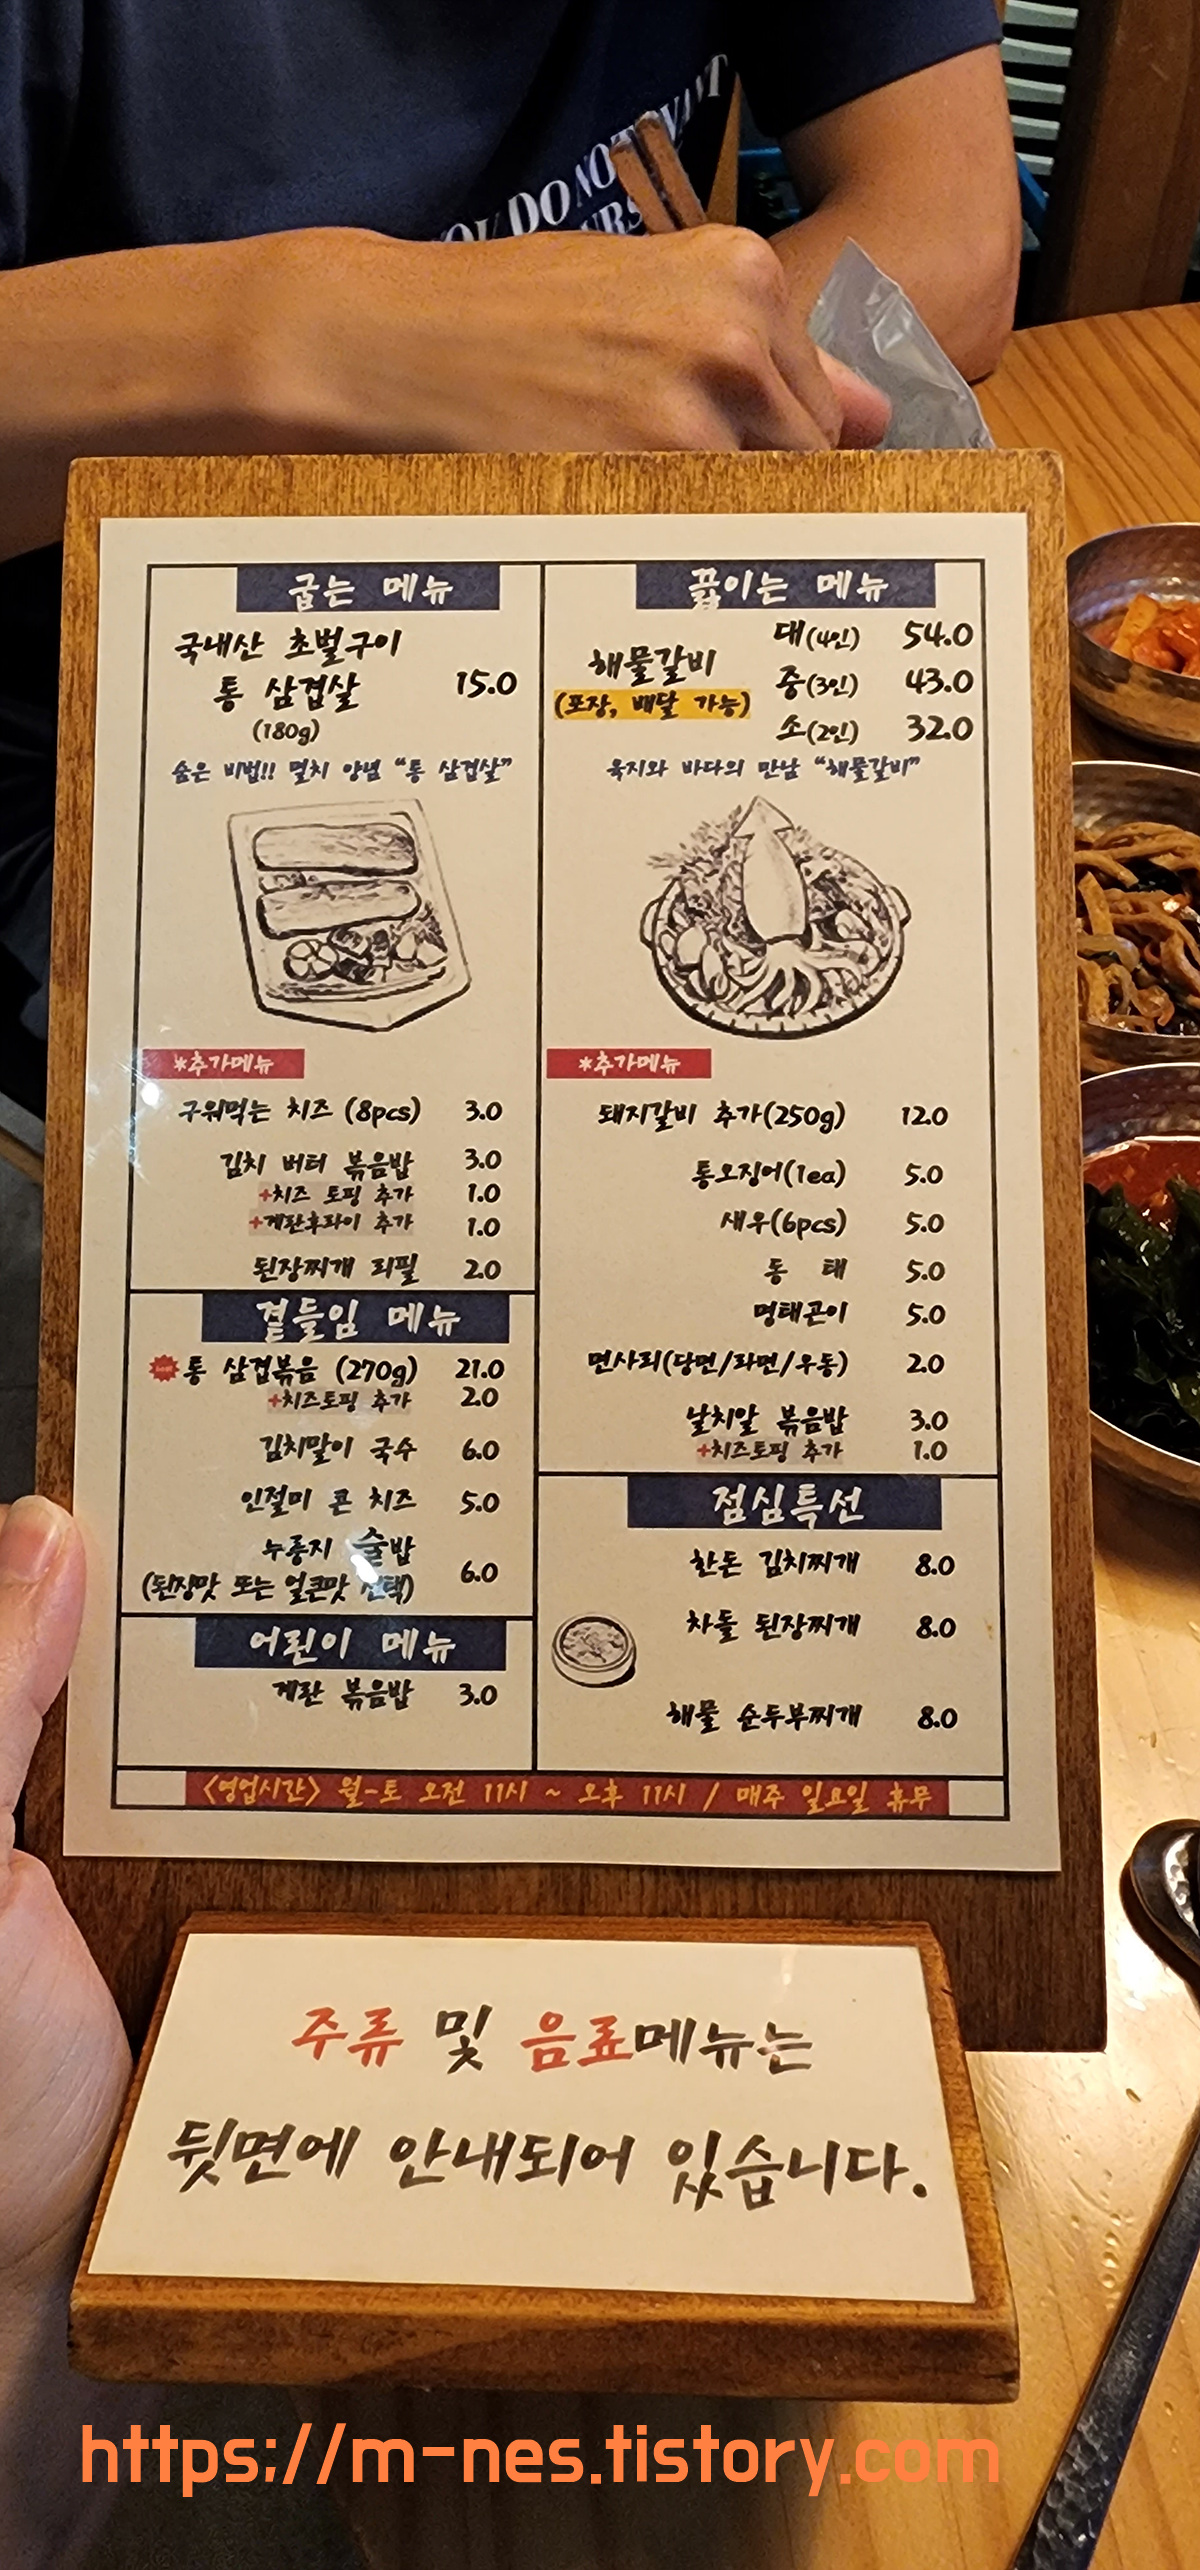 YOU DO NOT WANT
URS
굽는 메뉴
국내산 초벌구이
통 삼겹살 15.0
(180g)
숨은 비법!! 멸치 양념 “통 삼겹살”
*추가메뉴
구워먹는 치즈 (8pcs) 3.0
김치 버터 볶음밥 3.0
+치즈 토핑 추가 1.0
+계란후라이 추가 1.0
된장찌개 리필 2.0
곁들임 메뉴
통 삼겹볶음 (270g) 21.0
+치즈토핑 추가 2.0
김치말이 국수 6.0
인절미 콘 치즈 5.0
누룽지 술밥
(된장맛 또는 얼큰맛 선택) 6.0
어린이 메뉴
계란 볶음밥 3.0
끓이는 메뉴
해물갈비
(포장, 배달 가능)
대(4인) 54.0
중(3인) 43.0
소(2인) 32.0
육지와 바다의 만남 “해물갈비”
*추가메뉴
돼지갈비 추가(250g) 12.0
통오징어(1ea) 5.0
새우(6pcs) 5.0
동 태 5.0
명태곤이 5.0
면사리(당면/라면/우동) 2.0
날치알 볶음밥 3.0
+치즈토핑 추가 1.0
점심특선
한돈 김치찌개 8.0
차돌 된장찌개 8.0
해물 순두부찌개 8.0
<영업시간> 월-토 오전 11시 ~ 오후 11시 / 매주 일요일 휴무
주류 및 음료메뉴는
뒷면에 안내되어 있습니다.
https://m-nes.tistory.com